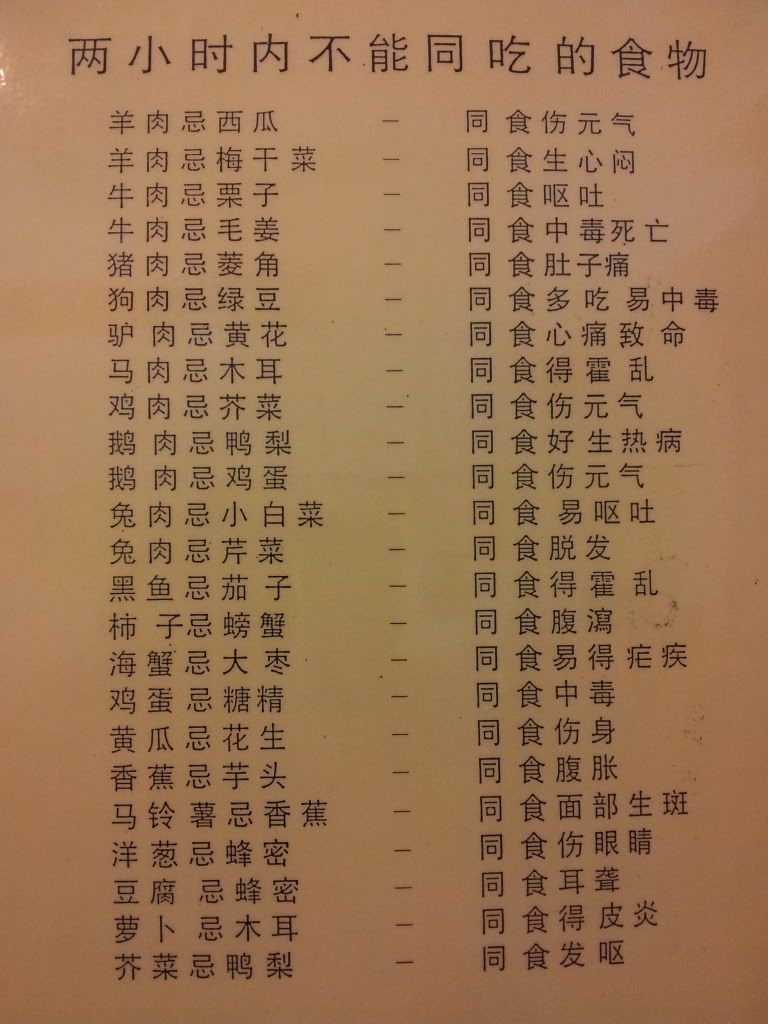 两小时内不能同吃的食物
羊肉忌西瓜 — 同食伤元气
羊肉忌梅干菜 — 同食生心闷
牛肉忌栗子 — 同食呕吐
牛肉忌毛姜 — 同食中毒死亡
猪肉忌菱角 — 同食肚子痛
狗肉忌绿豆 — 同食多吃易中毒
驴肉忌黄花 — 同食心痛致命
马肉忌木耳 — 同食得霍乱
鸡肉忌芥菜 — 同食伤元气
鹅肉忌鸭梨 — 同食好生热病
鹅肉忌鸡蛋 — 同食伤元气
兔肉忌小白菜 — 同食易呕吐
兔肉忌芹菜 — 同食脱发
黑鱼忌茄子 — 同食得霍乱
柿子忌螃蟹 — 同食腹瀉
海蟹忌大枣 — 同食易得疟疾
鸡蛋忌糖精 — 同食中毒
黄瓜忌花生 — 同食伤身
香蕉忌芋头 — 同食腹胀
马铃薯忌香蕉 — 同食面部生斑
洋葱忌蜂密 — 同食伤眼睛
豆腐忌蜂密 — 同食耳聋
萝卜忌木耳 — 同食得皮炎
芥菜忌鸭梨 — 同食发呕